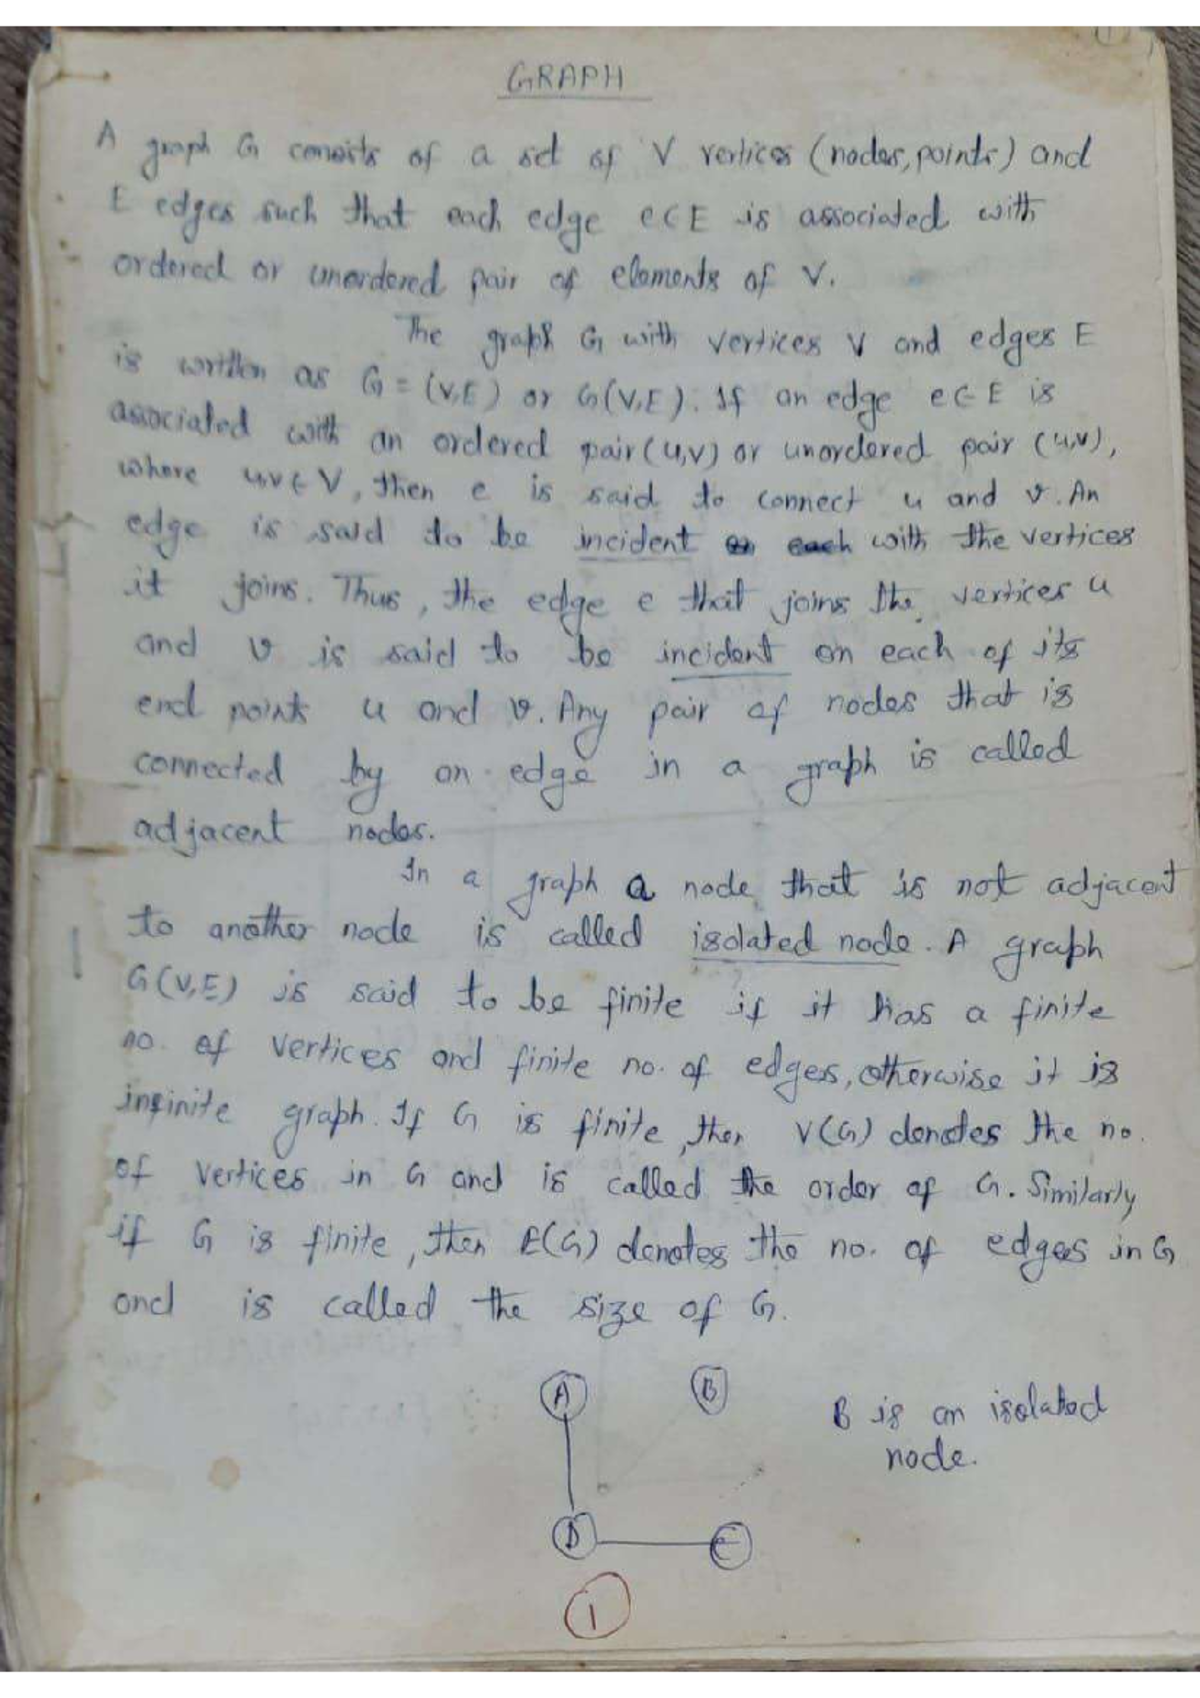 GRAPH
A graph G consists of a set of V vertices (nodes, points) and
E edges such that each edge e∈E is associated with
ordered or unordered pair of elements of V.
The graph G with vertices V and edges E
is written as G = (V,E) or G(V,E). If an edge e∈E is
associated with an ordered pair (u,v) or unordered pair (u,v),
where u,v∈V, then e is said to connect u and v. An
edge is said to be incident on each with the vertices
it joins. Thus, the edge e that joins the vertices u
and v is said to be incident on each of its
end points u and v. Any pair of nodes that is
connected by an edge in a graph is called
adjacent nodes.
In a graph a node that is not adjacent
to another node is called isolated node. A graph
G(V,E) is said to be finite if it has a finite
no. of vertices and finite no. of edges, otherwise it is
infinite graph. If G is finite, then V(G) denotes the no.
of vertices in G and is called the order of G. Similarly
if G is finite, then E(G) denotes the no. of edges in G
and is called the size of G.
A B
B is an isolated
node.
D C
1